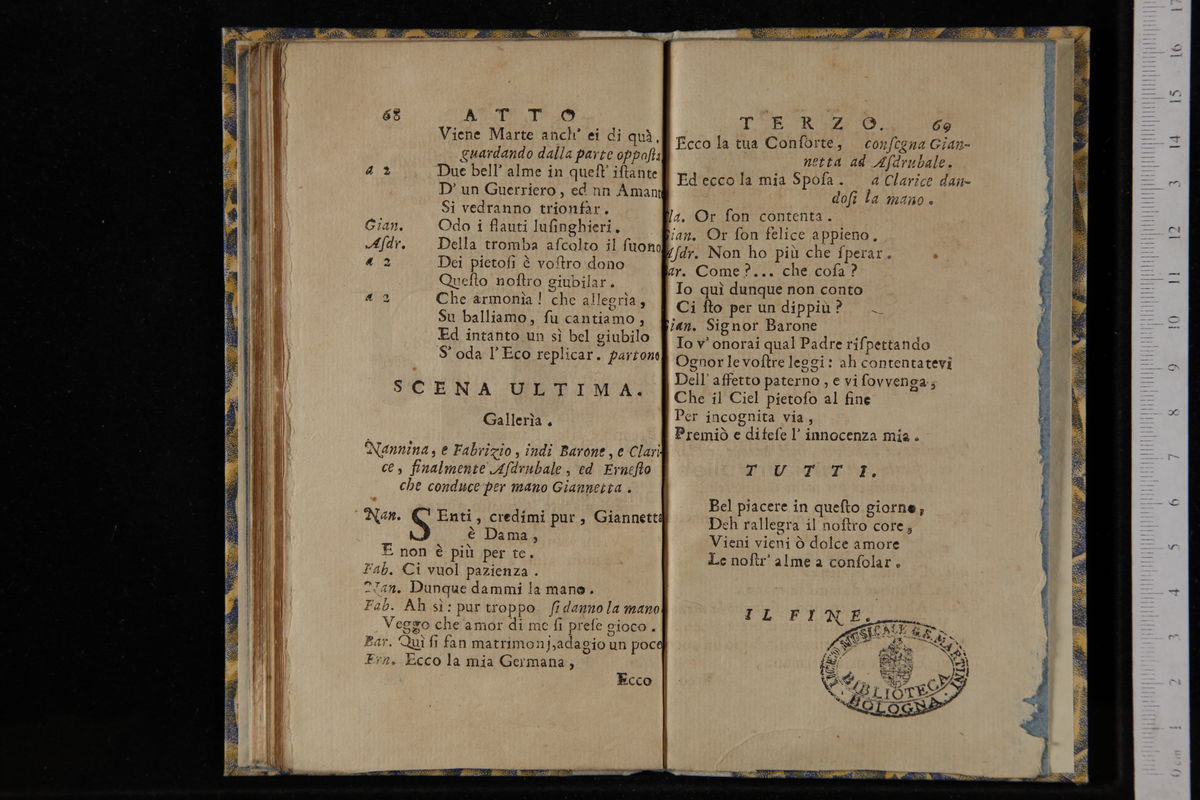 68 ATTO
Viene Marte anch' ei di quà,
guardando dalla parte opposta
a 2 Due bell' alme in quest' istante
D' un Guerriero, ed nn Amante
Si vedranno trionfar.
Gian. Odo i flauti lusinghieri.
Asdr. Della tromba ascolto il suono
a 2 Dei pietosi è vostro dono
Questo nostro giubilar.
a 2 Che armonìa! che allegrìa,
Su balliamo, su cantiamo,
Ed intanto un sì bel giubilo
S' oda l' Eco replicar. partono
SCENA ULTIMA.
Gallerìa.
Nannina, e Fabrizio, indi Barone, e Clari-
ce, finalmente Asdrubale, ed Ernesto
che conduce per mano Giannetta.
Nan. SEnti, credimi pur, Giannetta
è Dama,
E non è più per te.
Fab. Ci vuol pazienza.
Nan. Dunque dammi la mano.
Fab. Ah sì: pur troppo si danno la mano
Veggo che amor di me si prese gioco.
Bar. Quì si fan matrimonj, adagio un poco
Ern. Ecco la mia Germana,
Ecco
TERZO. 69
Ecco la tua Consorte, consegna Gian-
netta ad Asdrubale.
Ed ecco la mia Sposa. a Clarice dan-
dosi la mano.
Cla. Or son contenta.
Gian. Or son felice appieno.
Asdr. Non ho più che sperar.
Bar. Come?... che cosa?
Io quì dunque non conto
Ci sto per un dippiù?
Gian. Signor Barone
Io v' onorai qual Padre rispettando
Ognor le vostre leggi: ah contentatevi
Dell' affetto paterno, e vi sovvenga,
Che il Ciel pietoso al fine
Per incognita via,
Premiò e difese l' innocenza mia.
TUTTI.
Bel piacere in questo giorno,
Deh rallegra il nostro core,
Vieni vieni ò dolce amore
Le nostr' alme a consolar.
IL FINE.
LICEO MUSICALE G.B. MARTINI
BIBLIOTECA
BOLOGNA
0 cm 1 2 3 4 5 6 7 8 9 10 11 12 13 14 15 16 17